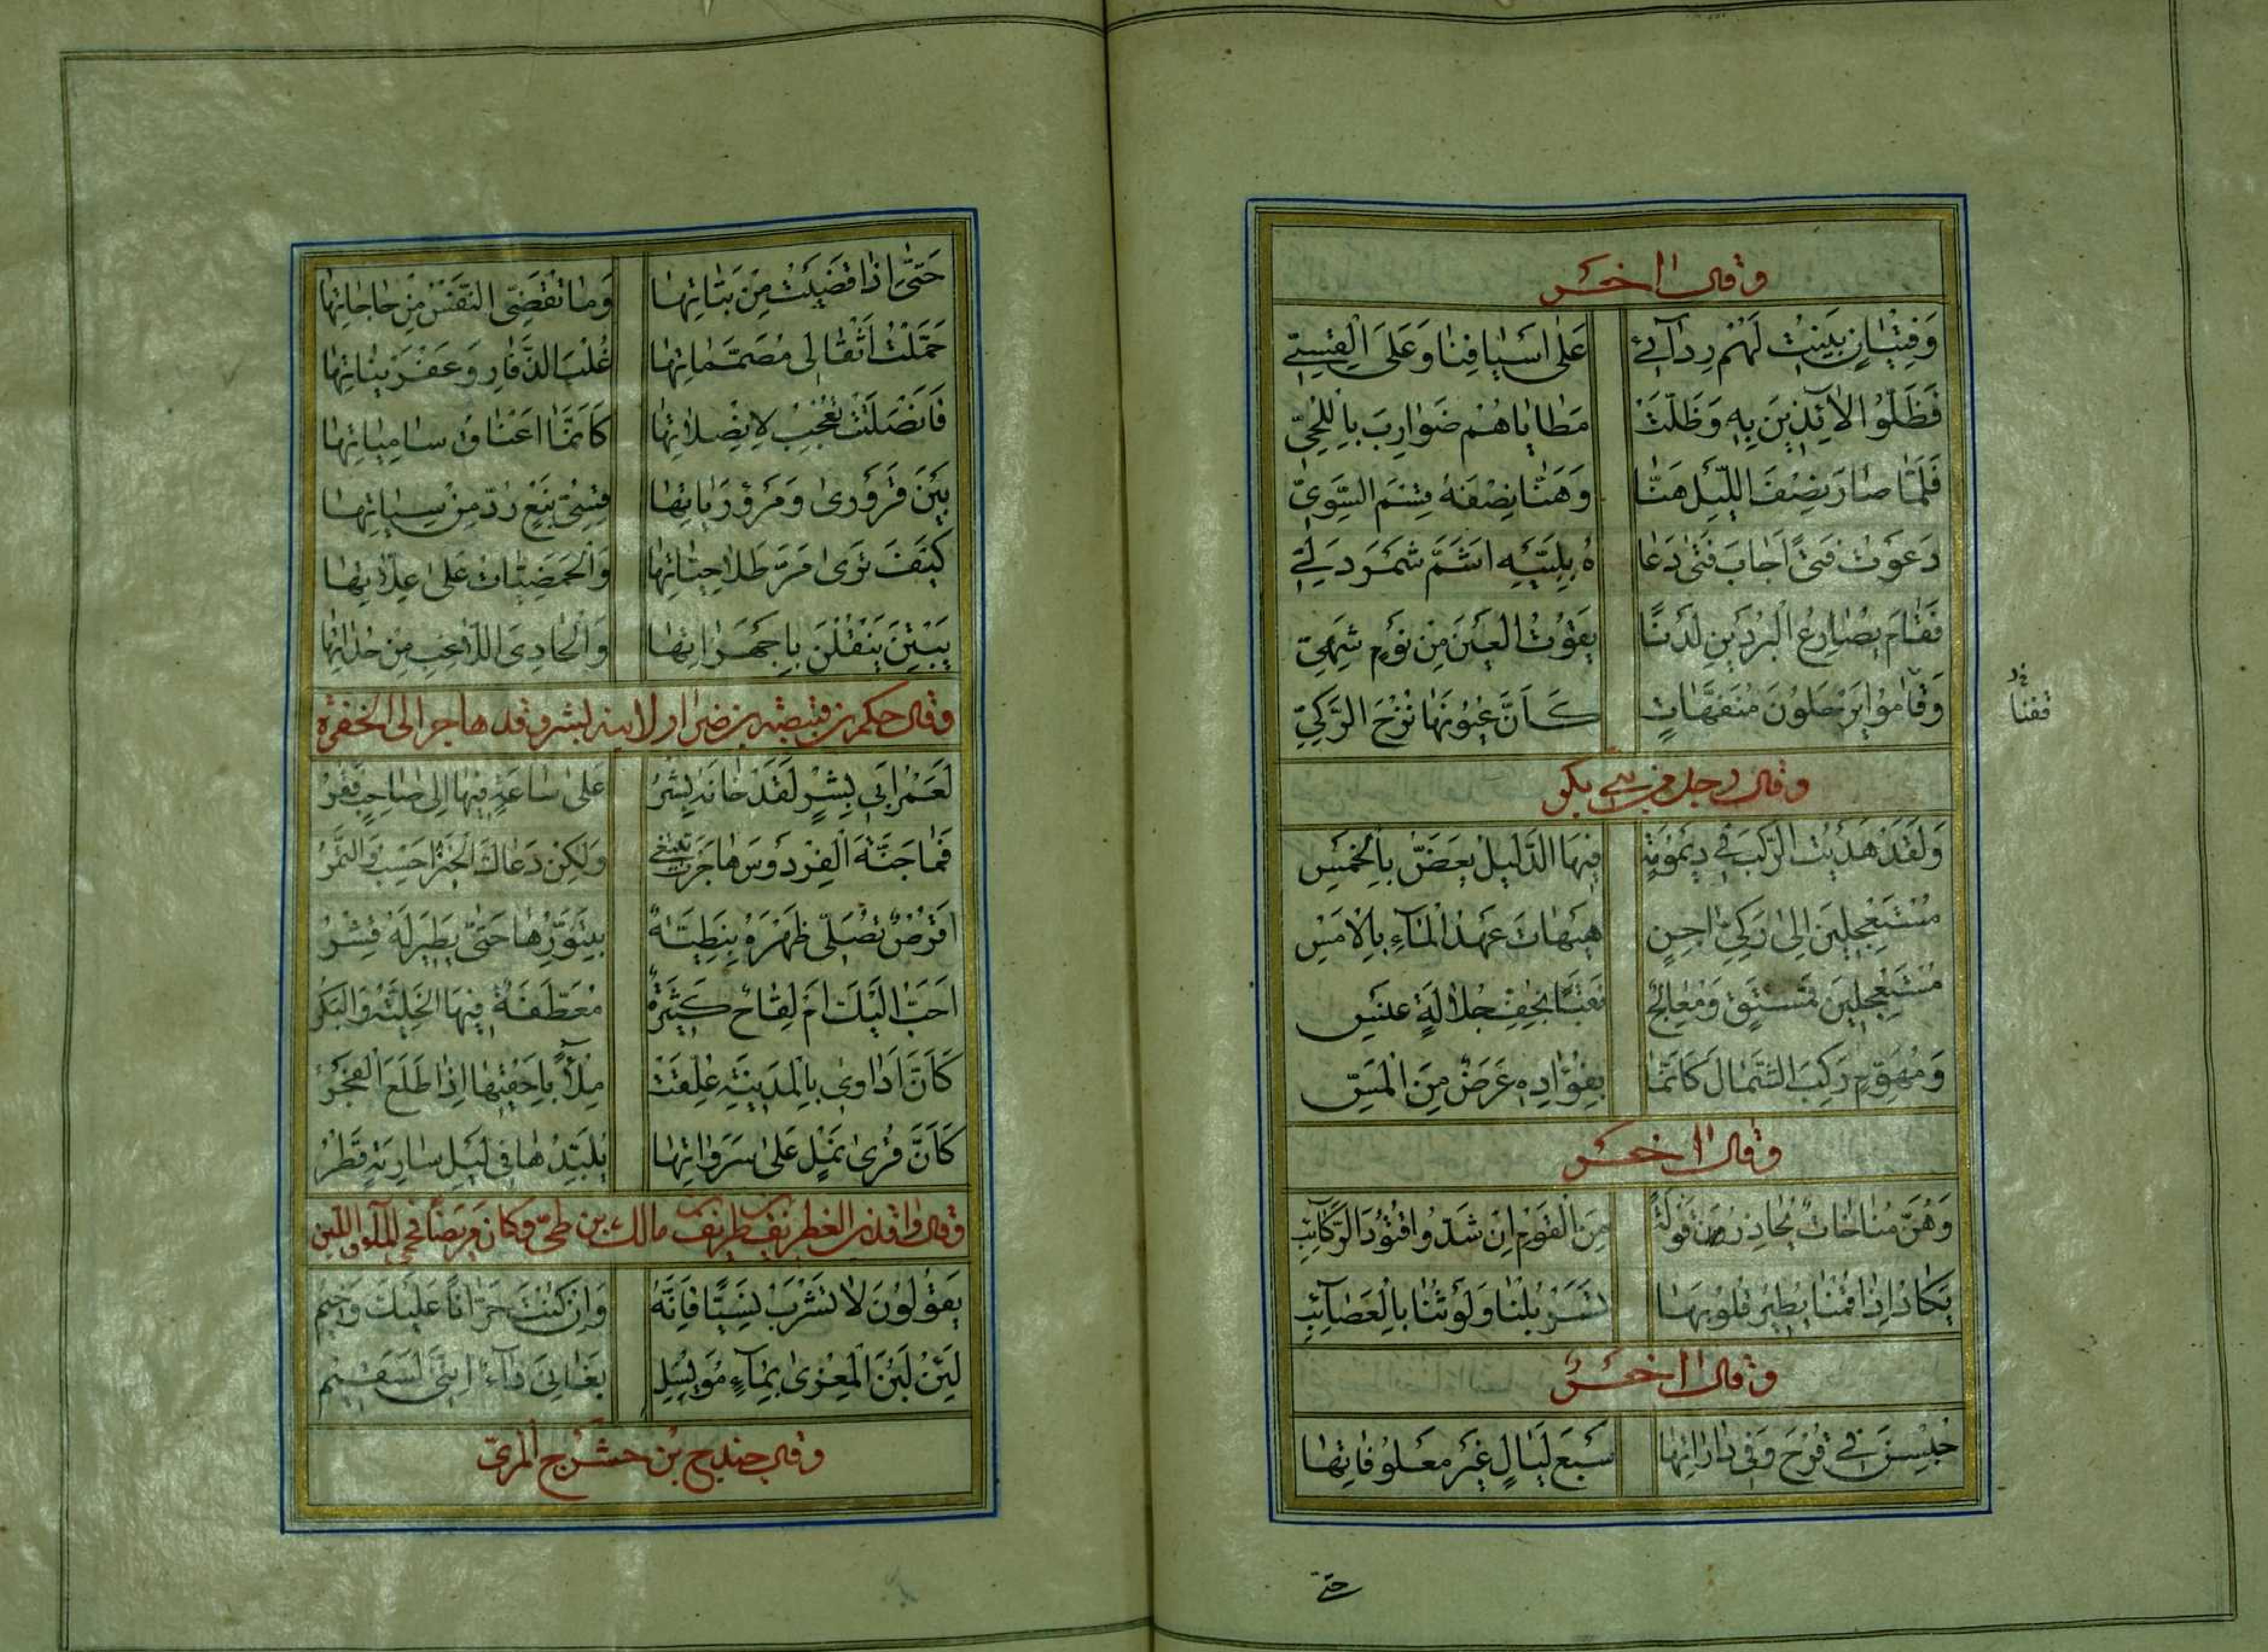 وقال آخر
وَفِتْيَانٍ بَنَيْتُ لَهُمْ رِدَائِي عَلَى أَسْيَافِنَا وَعَلَى الْقِسِيِّ
فَظَلُّوا لَائِذِينَ بِهِ وَظَلَّتْ مَطَايَاهُمْ ضَوَارِبَ بِاللُّحِيِّ
فَلَمَّا صَارَ نِصْفُ اللَّيْلِ هَنَّا وَهَنَّا نِصْفُهُ قِسْمَ السَّوِيِّ
دَعَوْتُ فَتًى أَجَابَ فَتًى دَعَاهُ بِلَبَّيْهِ أَشَمَّ شَمَرْدَلِيِّ
فَقَامَ يُصَارِعُ الْبُرْدَيْنِ لَدْنًا يَقُوتُ الْعَيْنَ مِنْ نَوْمٍ شَهِيِّ
وَقَامُوا يَرْحَلُونَ مُنَفَّهَاتٍ كَأَنَّ عُيُونَهَا نُزُحُ الرَّكِيِّ
وقال رجل من بني بكر
وَلَقَدْ هَدَيْتُ الرَّكْبَ فِي دَيْمُومَةٍ فِيهَا الدَّلِيلُ يَعَضُّ بِالْخَمْسِ
مُسْتَعْجِلِينَ إِلَى رَكِيٍّ آجِنٍ هَيْهَاتَ عَهْدُ الْمَاءِ بِالْأَمْسِ
مُسْتَعْجِلِينَ فَمُسْتَقٍ وَمُعَالِجٌ نَقْبًا بِخُفِّ جُلَالَةٍ عَنْسِ
وَمُهَوِّمٍ رَكِبَ الشِّمَالَ كَأَنَّمَا بِفُؤَادِهِ عَرَضٌ مِنَ الْمَسِّ
وقال آخر
وَهُنَّ مُنَاخَاتٌ يُحَاذِرْنَ قَوْلَةً مِنَ الْقَوْمِ إِنْ شَدُّوا قُتُودَ الرَّكَائِبِ
يَكَادُ إِذَا قُمْنَا يُطِيرُ قُلُوبَهَا تَسَرْبُلُنَا وَلَوْثُنَا بِالْعَصَائِبِ
وقال آخر
حُبِسْنَ فِي قُرْحَ وَفِي دَارَاتِهَا سَبْعَ لَيَالٍ غَيْرَ مَعْلُوفَاتِهَا
حتى
حَتَّى إِذَا قَضَيْتُ مِنْ بَتَاتِهَا وَمَا تُقَضِّي النَّفْسُ مِنْ حَاجَاتِهَا
حَمَّلْتُ أَثْقَالِي مُصَمَّمَاتِهَا غُلْبَ الذَّفَارِي وَعَفَرْنَيَاتِهَا
فَانْصَلَتَتْ تَعْجَبُ لِانْصِلَاتِهَا كَأَنَّمَا أَعْنَاقُ سَامِيَاتِهَا
بَيْنَ قَرَوْرَى وَمَرَوْرَيَاتِهَا قِسِيُّ نَبْعٍ رُدَّ مِنْ سِيَاتِهَا
كَيْفَ تَرَى مَرَّ طُلَاحِيَّاتِهَا وَالْحَمَضِيَّاتُ عَلَى عِلَّاتِهَا
يَبِتْنَ يَنْقُلْنَ بِأَجْهِزَاتِهَا وَالْحَادِيَ اللَّاغِبَ مِنْ حُدَاتِهَا
وقال حكم بن قبيصة بن ضرار لابنه بشر وقد هاجر إلى الحضرة
لَعَمْرُ أَبِي بِشْرٍ لَقَدْ خَانَهُ بِشْرُ عَلَى سَاعَةٍ فِيهَا إِلَى صَاحِبٍ فَقْرُ
فَمَا جَنَّةَ الْفِرْدَوْسِ هَاجَرْتَ تَبْتَغِي وَلَكِنْ دَعَاكَ الْخُبْزُ أَحْسِبُ وَالتَّمْرُ
أَقُرْصٌ تُصَلِّي ظَهْرَهُ نَبَطِيَّةٌ بِتَنُّورِهَا حَتَّى يَطِيرَ لَهُ قِشْرُ
أَحَبُّ إِلَيْكَ أَمْ لِقَاحٌ كَثِيرَةٌ مُعَطَّفَةٌ فِيهَا الْجَلِيلَةُ وَالْبَكْرُ
كَأَنَّ أَدَاوِي بِالْمَدِينَةِ عُلِّقَتْ مِلَاءً بِأَحْقِيهَا إِذَا طَلَعَ الْفَجْرُ
كَأَنَّ قُرَى نَمْلٍ عَلَى سَرَوَاتِهَا يُلَبِّدُهَا فِي لَيْلِ سَارِيَةٍ قَطْرُ
وقال واقد بن الغطريف طريف مالك بن طيّ وكان مريضا فحمي الماء واللبن
يَقُولُونَ لَا تَشْرَبْ نَسِيئًا فَإِنَّهُ وَإِنْ كُنْتَ حَرَّانًا عَلَيْكَ وَخِيمُ
لَئِنْ لَبَنُ الْمِعْزَى بِمَاءِ مُوَيْسِلٍ بَغَانِيَ دَاءً إِنَّنِي لَسَقِيمُ
وقال حندج بن حندج المري